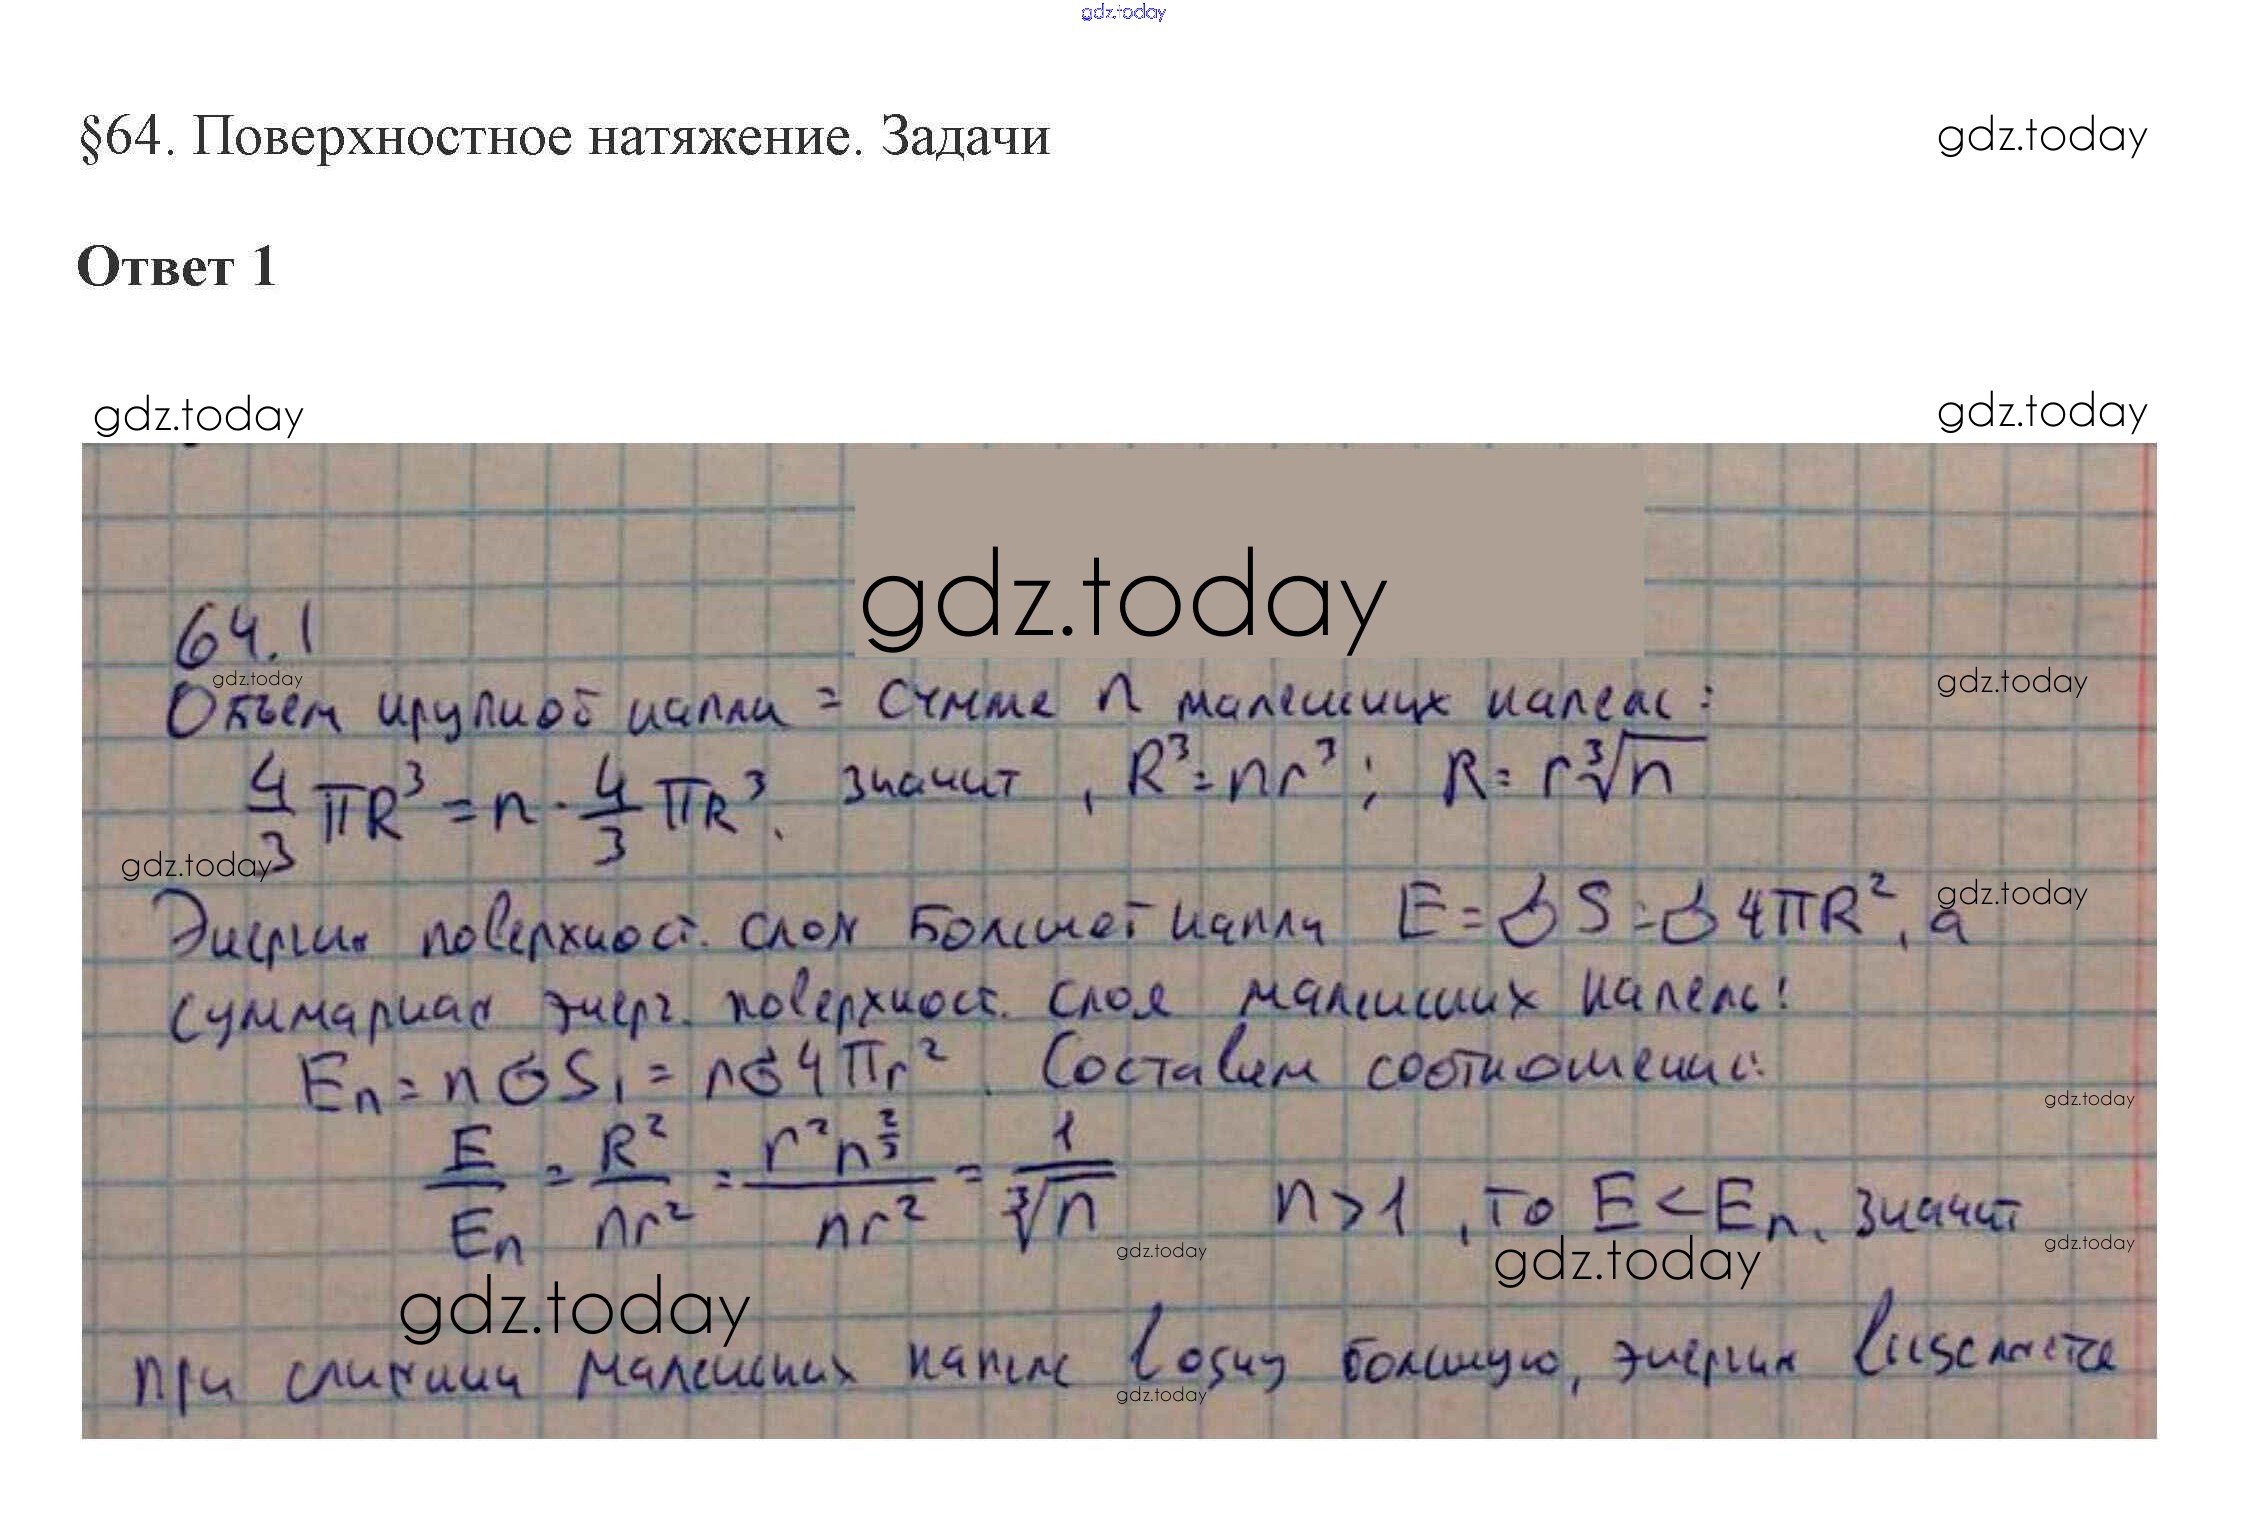 gdz.today
§64. Поверхностное натяжение. Задачи
gdz.today
Ответ 1
gdz.today
gdz.today
gdz.today
64.1
gdz.today
gdz.today
Объем крупной капли = сумме n маленьких капель:
4/3 πR³ = n · 4/3 πR³. значит, R³ = nr³; R = r∛n
gdz.today
gdz.today
Энергия поверхност. слоя большой капли E = σS = σ4πR², а
суммарная энерг. поверхност. слоя маленьких капель:
Eₙ = nσS₁ = nσ4πr². Составим соотношение:
gdz.today
E/Eₙ = R²/nr² = r²n^(2/3)/nr² = 1/∛n n > 1, то E < Eₙ. значит
gdz.today
gdz.today
gdz.today
gdz.today
при слиянии маленьких капель в одну большую, энергия выделяется
gdz.today